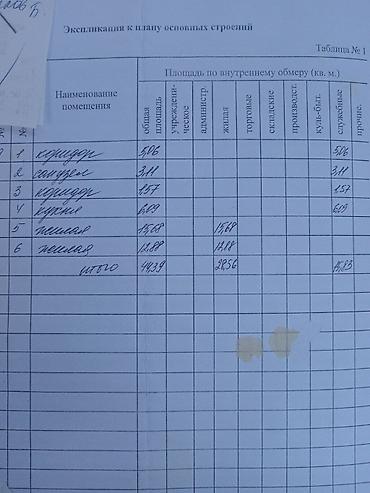 Экспликация к плану основных строений
Таблица № 1
Наименование помещения
Площадь по внутреннему обмеру (кв. м.)
общая площадь
учрежденческое
администр.
жилая
торговые
складские
производст.
куль-быт.
служебные
прочие.
1 коридор 5,06 5,06
2 санузел 3,11 3,11
3 коридор 1,57 1,57
4 кухня 6,09 6,09
5 жилая 15,68 15,68
6 жилая 12,88 12,88
итого 44,39 28,56 15,83